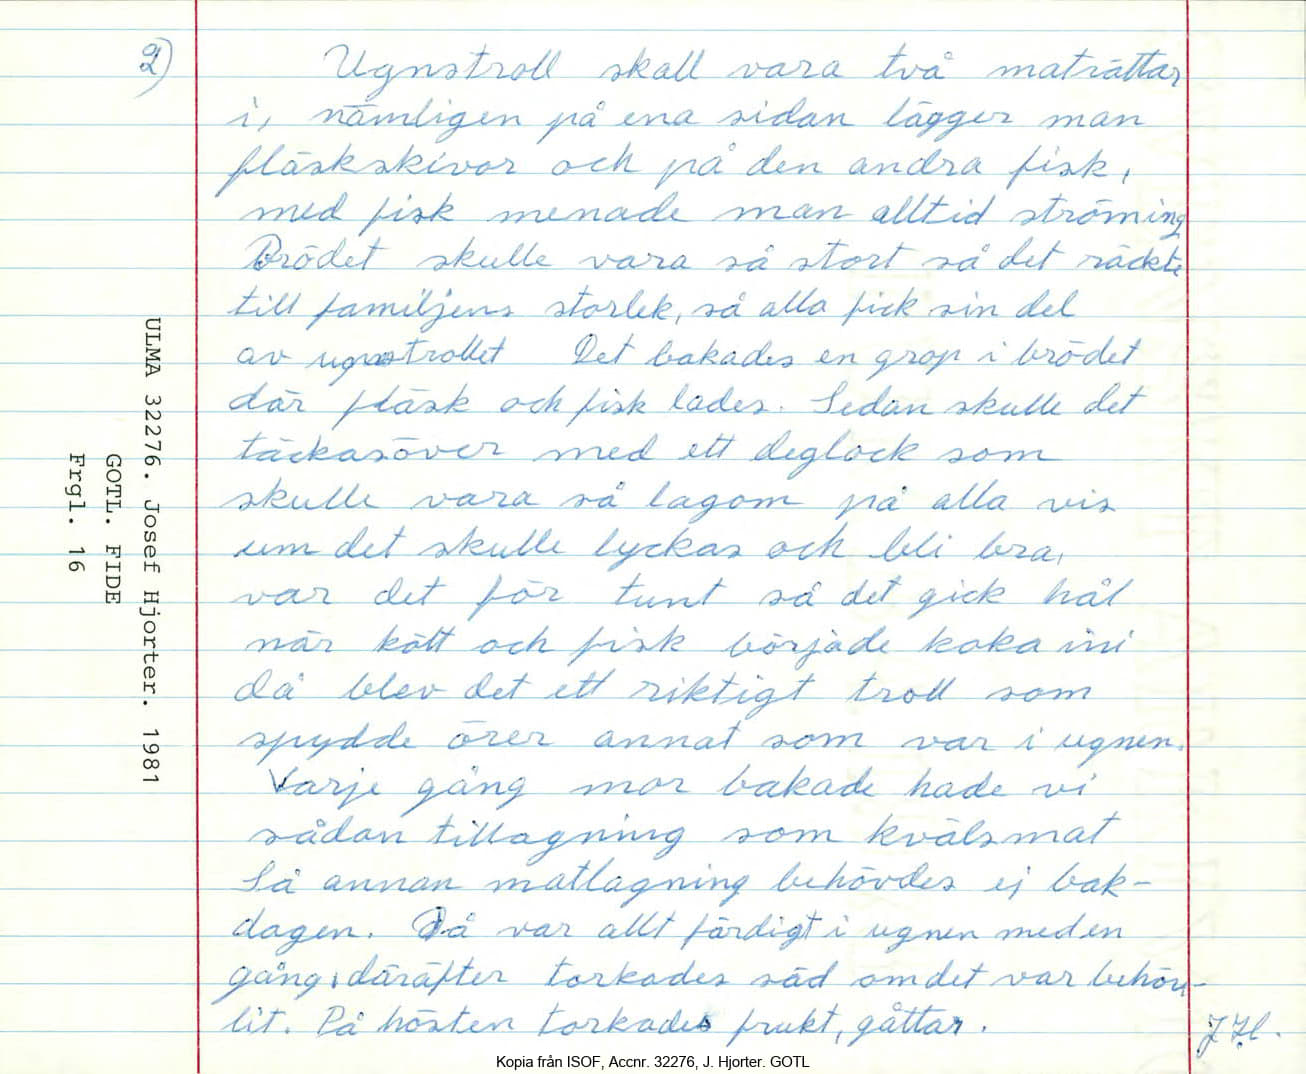 2)
Ugnstroll skall vara två maträttar
i, nämligen på ena sidan lägger man
fläskskivor och på den andra fisk,
med fisk menade man alltid ströming
Brödet skulle vara så stort så det räckte
till familjens storlek, så alla fick sin del
av ugnstrollet Det bakades en grop i brödet
där fläsk och fisk lades. Sedan skulle det
täckasöver med ett deglock som
skulle vara så lagom på alla vis
um det skulle lyckas och bli bra,
var det för tunt så det gick hål
når kött och fisk började koka ini
då blev det ett riktigt troll som
spydde örer annat som var i ugnen.
Varje gång mor bakade hade vi
sådan tillagning som kvälsmat
Så annan matlagning behövdes ej bak-
dagen. Då var allt färdigt i ugnen meden
gång, däräfter torkades säd omdet var behöv-
lit. På hösten torkades frukt, gåttar.
J H.
ULMA 32276. Josef Hjorter. 1981
GOTL. FIDE
Frgl. 16
Kopia från ISOF, Accnr. 32276, J. Hjorter. GOTL